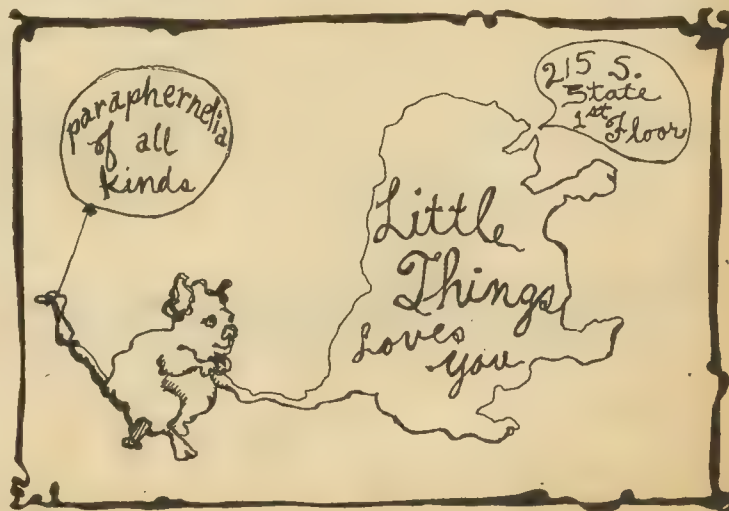 paraphernelia
of all
kinds
215 S.
State
1st
Floor
Little
Things
Loves
you